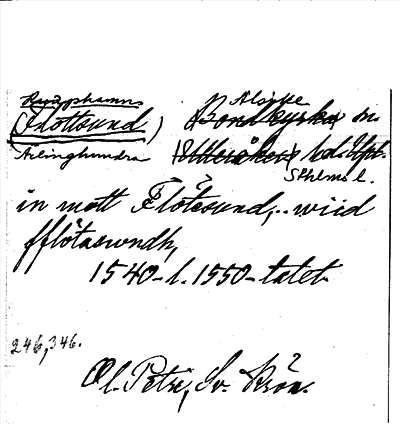 Kungshamn Alsike
(Flottsund) Bondkyrka sn
Ärlinghundra Ulleråkers hd. Upl.
Sthlms l.
in mott Flötesund,.. wiid
fflötaswndh,
1540-l. 1550-talet
246, 346.
Ol. Petri, Sv. Krön.